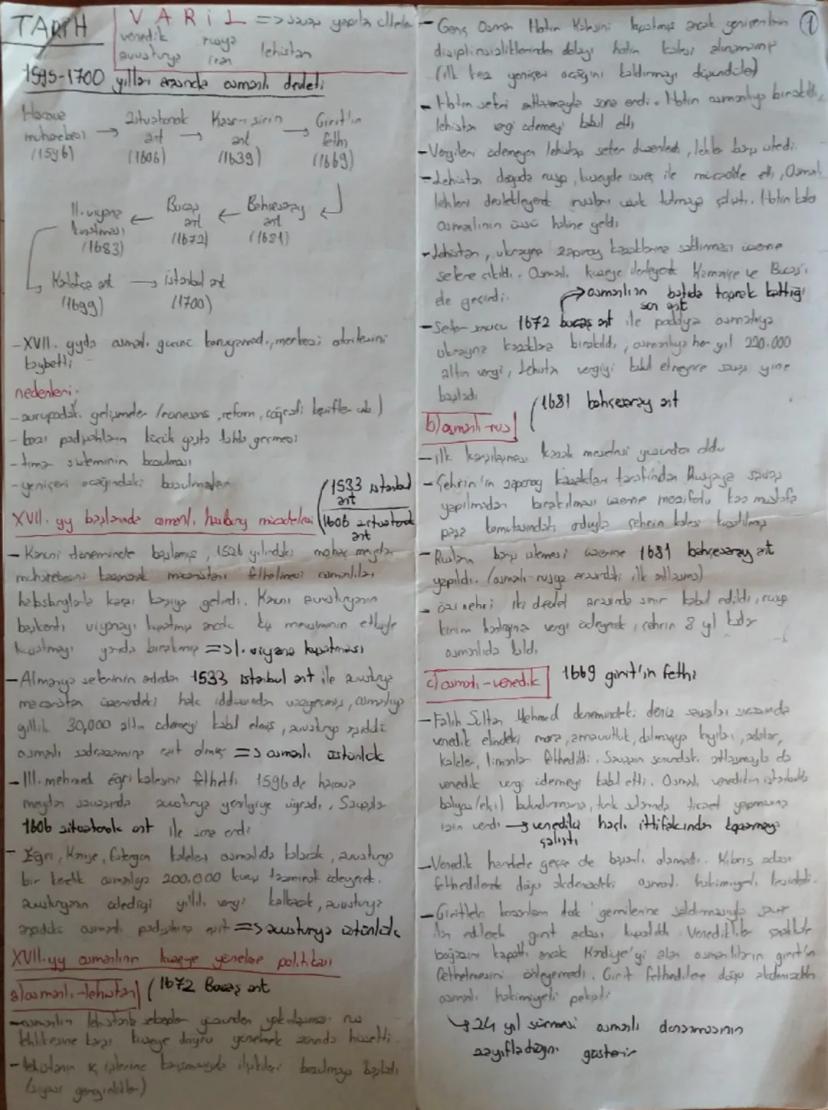 TARİH
VARİL => savaş yapılan ülkeler
venedik rusya lehistan
avusturya iran
1595-1700 yılları arasında osmanlı devleti
Haçova muharebesi (1596) → Zitvatorok ant (1606) → Kasr-ı şirin ant (1639) → Girit'in fethi (1669)
II. viyana kuşatması (1683) ← Bucaş ant (1672) ← Bahçesaray ant (1681)
Karlofça ant (1699) → istanbul ant (1700)
- XVII. yyda osmanlı gücünü koruyamadı, merkezi otoritesini
kaybetti
nedenleri:
- avrupadaki gelişmeler (rönesans, reform, coğrafi keşifler vb.)
- bazı padişahların küçük yaşta tahta geçmesi
- tımar sisteminin bozulması
- yeniçeri ocağındaki bozulmalar
XVII. yy başlarında osmanlı habsburg mücadelesi (1533 istanbul ant
1606 zitvatorok ant
- Kanuni döneminde başlamış, 1526 yılındaki mohaç meydan
muharebesini kazanarak macaristanı fethetmesi osmanlıları
habsburglarla karşı karşıya getirdi. Kanuni avusturyanın
başkenti viyanayı kuşatmış ancak kış mevsiminin etkisiyle
kuşatmayı yarıda bırakmış => I. viyana kuşatması
- Almanya seferinin ardından 1533 istanbul ant ile avusturya
macaristan üzerindeki hak iddiasından vazgeçmiş, osmanlıya
yıllık 30,000 altın ödemeyi kabul etmiş, avusturya arşidükü
osmanlı sadrazamına eşit olmuş => osmanlı üstünlük
- III. mehmed eğri kalesini fethetti 1596 da haçova
meydan savaşında avusturya yenilgiye uğradı. Savaşlar
1606 zitvatorok ant ile sona erdi
- Eğri, Kanije, Estergon kaleleri osmanlıda kalacak, avusturya
bir kerelik osmanlıya 200.000 kuruş tazminat ödeyecek.
avusturyanın ödediği yıllık vergi kalkacak, avusturya
arşidükü osmanlı padişahına eşit => avusturya üstünlük
XVII. yy osmanlının kuzeye yönelme politikası
a) osmanlı-lehistan (1672 Bucaş ant
- osmanlının lehistanla sebepler yüzünden yakınlaşması rus
tehlikesine karşı kuzeye doğru yönelmek zorunda hissetti
- lehistanın iç işlerine karışmasıyla ilişkileri bozulmaya başladı
(siyasi gerginlikler)
1
- Genç Osman Hotin Kalesini kuşatmış ancak yeniçerilerin
disiplinsizliklerinden dolayı hotin kalesi alınamamış
(ilk kez yeniçeri ocağını kaldırmayı düşündüler)
- Hotin seferi antlaşmayla sona erdi. Hotin osmanlıya bırakıldı,
lehistan vergi ödemeyi kabul etti
- Vergileri ödemeyen lehistana sefer düzenlendi, lehler barış istedi.
- Lehistan doğuda rusya, kuzeyde isveç ile mücadele etti, Osmanlı
lehleri destekleyerek rusları uzak tutmaya çalıştı. Hotin kalesi
osmanlının üssü haline geldi
- Lehistan, ukrayna zaporoj kazaklarına saldırması üzerine
sefere çıkıldı. Osmanlı kuzeye ilerleyerek Kamaniçe ve Bucaş'ı
de geçirdi. → osmanlının batıda toprak kattığı son ant
- Sefer sonucu 1672 bucaş ant ile podolya osmanlıya
ukrayna kazaklara bırakıldı, osmanlıya her yıl 220.000
altın vergi, lehistan vergiyi kabul etmeyince savaş yine
başladı
b) osmanlı-rus (1681 bahçesaray ant
- ilk karşılaşması kazak meselesi yüzünden oldu
- Çehrin'in zaporog kazakları tarafından Rusyaya savaş
yapılmadan bırakılması üzerine merzifonlu kara mustafa
paşa komutasındaki orduyla çehrin kalesi kuşatılmış
- Rusların barış istemesi üzerine 1681 bahçesaray ant
yapıldı. (osmanlı rusya arasındaki ilk antlaşma)
- özi nehri iki devlet arasında sınır kabul edildi, rusya
kırım hanlığına vergi ödeyecek, çehrin 8 yıl kadar
osmanlıda kaldı.
c) osmanlı-venedik 1669 girit'in fethi
- Fatih Sultan Mehmed dönemindeki deniz savaşları sırasında
venedik elindeki mora, arnavutluk, dalmaçya kıyıları, adalar,
kaleler, limanlar fethedildi. Savaşın sonundaki antlaşmayla da
venedik vergi ödemeyi kabul etti. Osmanlı venediğin istanbulda
balyos/elçi bulundurmasına, türk sularında ticaret yapmasına
izin verdi → venediki haçlı ittifakından koparmaya
çalıştı
- Venedik harekete geçse de başarılı olamadı. Kıbrıs adası
fethedilerek doğu akdenizdeki osmanlı hakimiyeti
- Giritteki korsanların türk gemilerine saldırmasıyla savaş
ilan edilerek girit adası kuşatıldı. Venedikliler çanakkale
boğazını kapattı ancak Kandiye'yi alan osmanlıların girit'in
fethetmesini önleyemedi. Girit fethedilince doğu akdenizdeki
osmanlı hakimiyeti pekişti
↳ 24 yıl sürmesi osmanlı donanmasının
zayıfladığını gösterir